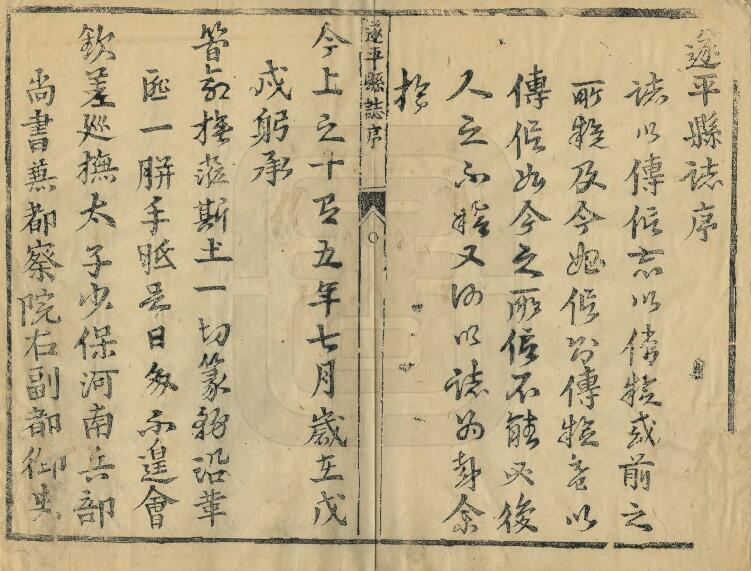 遂平縣誌序
誌以傳信亦以傳疑或前之
所疑及今始信若傳疑意以
傳信如今之所信不能必後
人之不疑又何以誌為哉余
於
遂平縣誌序
今上之十有五年七月歲在戊
戌躬承
簡命撫茲斯土一切篆務沿革
匪一胼手胝足日為不遑會
欽差巡撫太子少保河南兵部
尚書兼都察院右副都御史